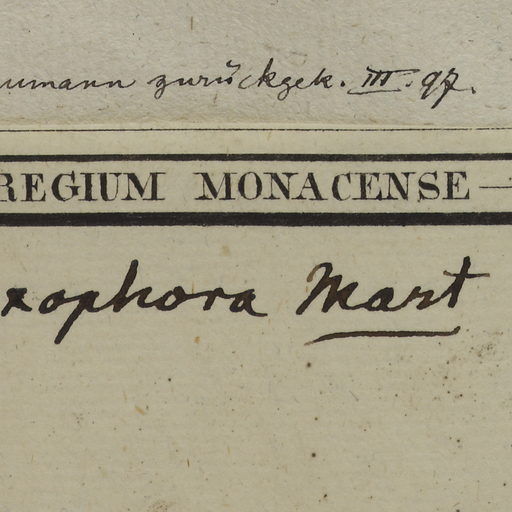 umann zurückgek. III. 97.
REGIUM MONACENSE
xophora Mart